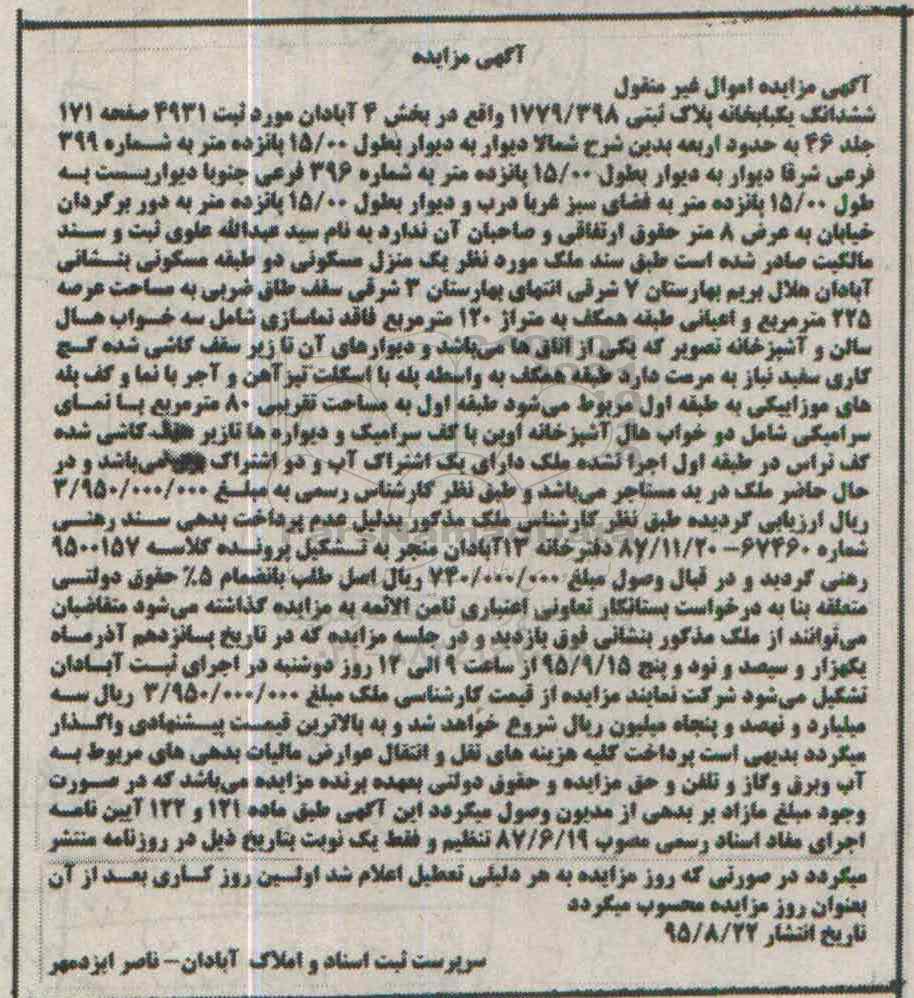 آگهی مزایده
آگهی مزایده اموال غیر منقول
ششدانگ یکبابخانه پلاک ثبتی ۱۷۷۹/۳۹۸ واقع در بخش ۴ آبادان مورد ثبت ۴۹۳۱ صفحه ۱۷۱
جلد ۴۶ به حدود اربعه بدین شرح شمالا دیوار به دیوار بطول ۱۵/۰۰ پانزده متر به شماره ۳۹۹
فرعی شرقا دیوار به دیوار بطول ۱۵/۰۰ پانزده متر به شماره ۳۹۶ فرعی جنوبا دیواریست به
طول ۱۵/۰۰ پانزده متر به فضای سبز غربا درب و دیوار بطول ۱۵/۰۰ پانزده متر به دور برگردان
خیابان به عرض ۸ متر حقوق ارتفاقی و صاحبان آن ندارد به نام سید عبدالله علوی ثبت و سند
مالکیت صادر شده است طبق سند ملک مورد نظر یک منزل مسکونی دو طبقه مسکونی بنشانی
آبادان هلال بریم بهارستان ۷ شرقی انتهای بهارستان ۳ شرقی سقف طاق ضربی به مساحت عرصه
۲۲۵ مترمربع و اعیانی طبقه همکف به متراژ ۱۲۰ مترمربع فاقد نماسازی شامل سه خواب هال
سالن و آشپزخانه تصویر که یکی از اتاق ها می‌باشد و دیوارهای آن تا زیر سقف کاشی شده گچ
کاری سفید نیاز به مرمت دارد طبقه همکف به واسطه پله با اسکلت تیرآهن و آجر با نما و کف پله
های موزاییکی به طبقه اول مربوط می‌شود طبقه اول به مساحت تقریبی ۸۰ مترمربع با نمای
سرامیکی شامل دو خواب هال آشپزخانه اوپن با کف سرامیک و دیواره ها تازیر سقف کاشی شده
کف تراس در طبقه اول اجرا نشده ملک دارای یک اشتراک آب و دو اشتراک می‌باشد و در
حال حاضر ملک در ید مستاجر می‌باشد و طبق نظر کارشناس رسمی به مبلغ ۳/۹۵۰/۰۰۰/۰۰۰
ریال ارزیابی گردیده طبق نظر کارشناس ملک مذکور بدلیل عدم پرداخت بدهی سند رهنی
شماره ۶۷۴۶۰-۸۷/۱۱/۲۰ دفترخانه ۱۳آبادان منجر به تشکیل پرونده کلاسه ۹۵۰۰۱۵۷
رهنی گردید و در قبال وصول مبلغ ۷۴۰/۰۰۰/۰۰۰ ریال اصل طلب بانضمام ۵٪ حقوق دولتی
متعلقه بنا به درخواست بستانکار تعاونی اعتباری ثامن الائمه به مزایده گذاشته می‌شود متقاضیان
می‌توانند از ملک مذکور بنشانی فوق بازدید و در جلسه مزایده که در تاریخ پانزدهم آذرماه
یکهزار و سیصد و نود و پنج ۹۵/۹/۱۵ از ساعت ۹ الی ۱۲ روز دوشنبه در اجرای ثبت آبادان
تشکیل می‌شود شرکت نمایند مزایده از قیمت کارشناسی ملک مبلغ ۳/۹۵۰/۰۰۰/۰۰۰ ریال سه
میلیارد و نهصد و پنجاه میلیون ریال شروع خواهد شد و به بالاترین قیمت پیشنهادی واگذار
میگردد بدیهی است پرداخت کلیه هزینه های نقل و انتقال عوارض مالیات بدهی های مربوط به
آب وبرق وگاز و تلفن و حق مزایده و حقوق دولتی بعهده برنده مزایده می‌باشد که در صورت
وجود مبلغ مازاد بر بدهی از مدیون وصول میگردد این آگهی طبق ماده ۱۲۱ و ۱۲۲ آیین نامه
اجرای مفاد اسناد رسمی مصوب ۸۷/۶/۱۹ تنظیم و فقط یک نوبت بتاریخ ذیل در روزنامه منتشر
میگردد در صورتی که روز مزایده به هر دلیلی تعطیل اعلام شد اولین روز کاری بعد از آن
بعنوان روز مزایده محسوب میگردد
تاریخ انتشار ۹۵/۸/۲۲
سرپرست ثبت اسناد و املاک آبادان- ناصر ایزدمهر